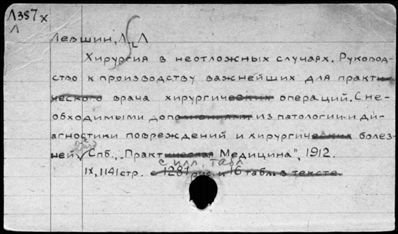 Л387х
Л
Левшин, Л. Л
Хирургия в неотложных случаях. Руковод-
ство к производству важнейших для практи-
ческого врача хирургических операций. С не-
обходимыми дополнениями из патологии и ди-
агностики повреждений и хирургических болез-
ней. Спб., "Практическая Медицина", 1912.
с илл. табл.
IX, 1141 стр. с 1281 рис. и 16 табл. в тексте.